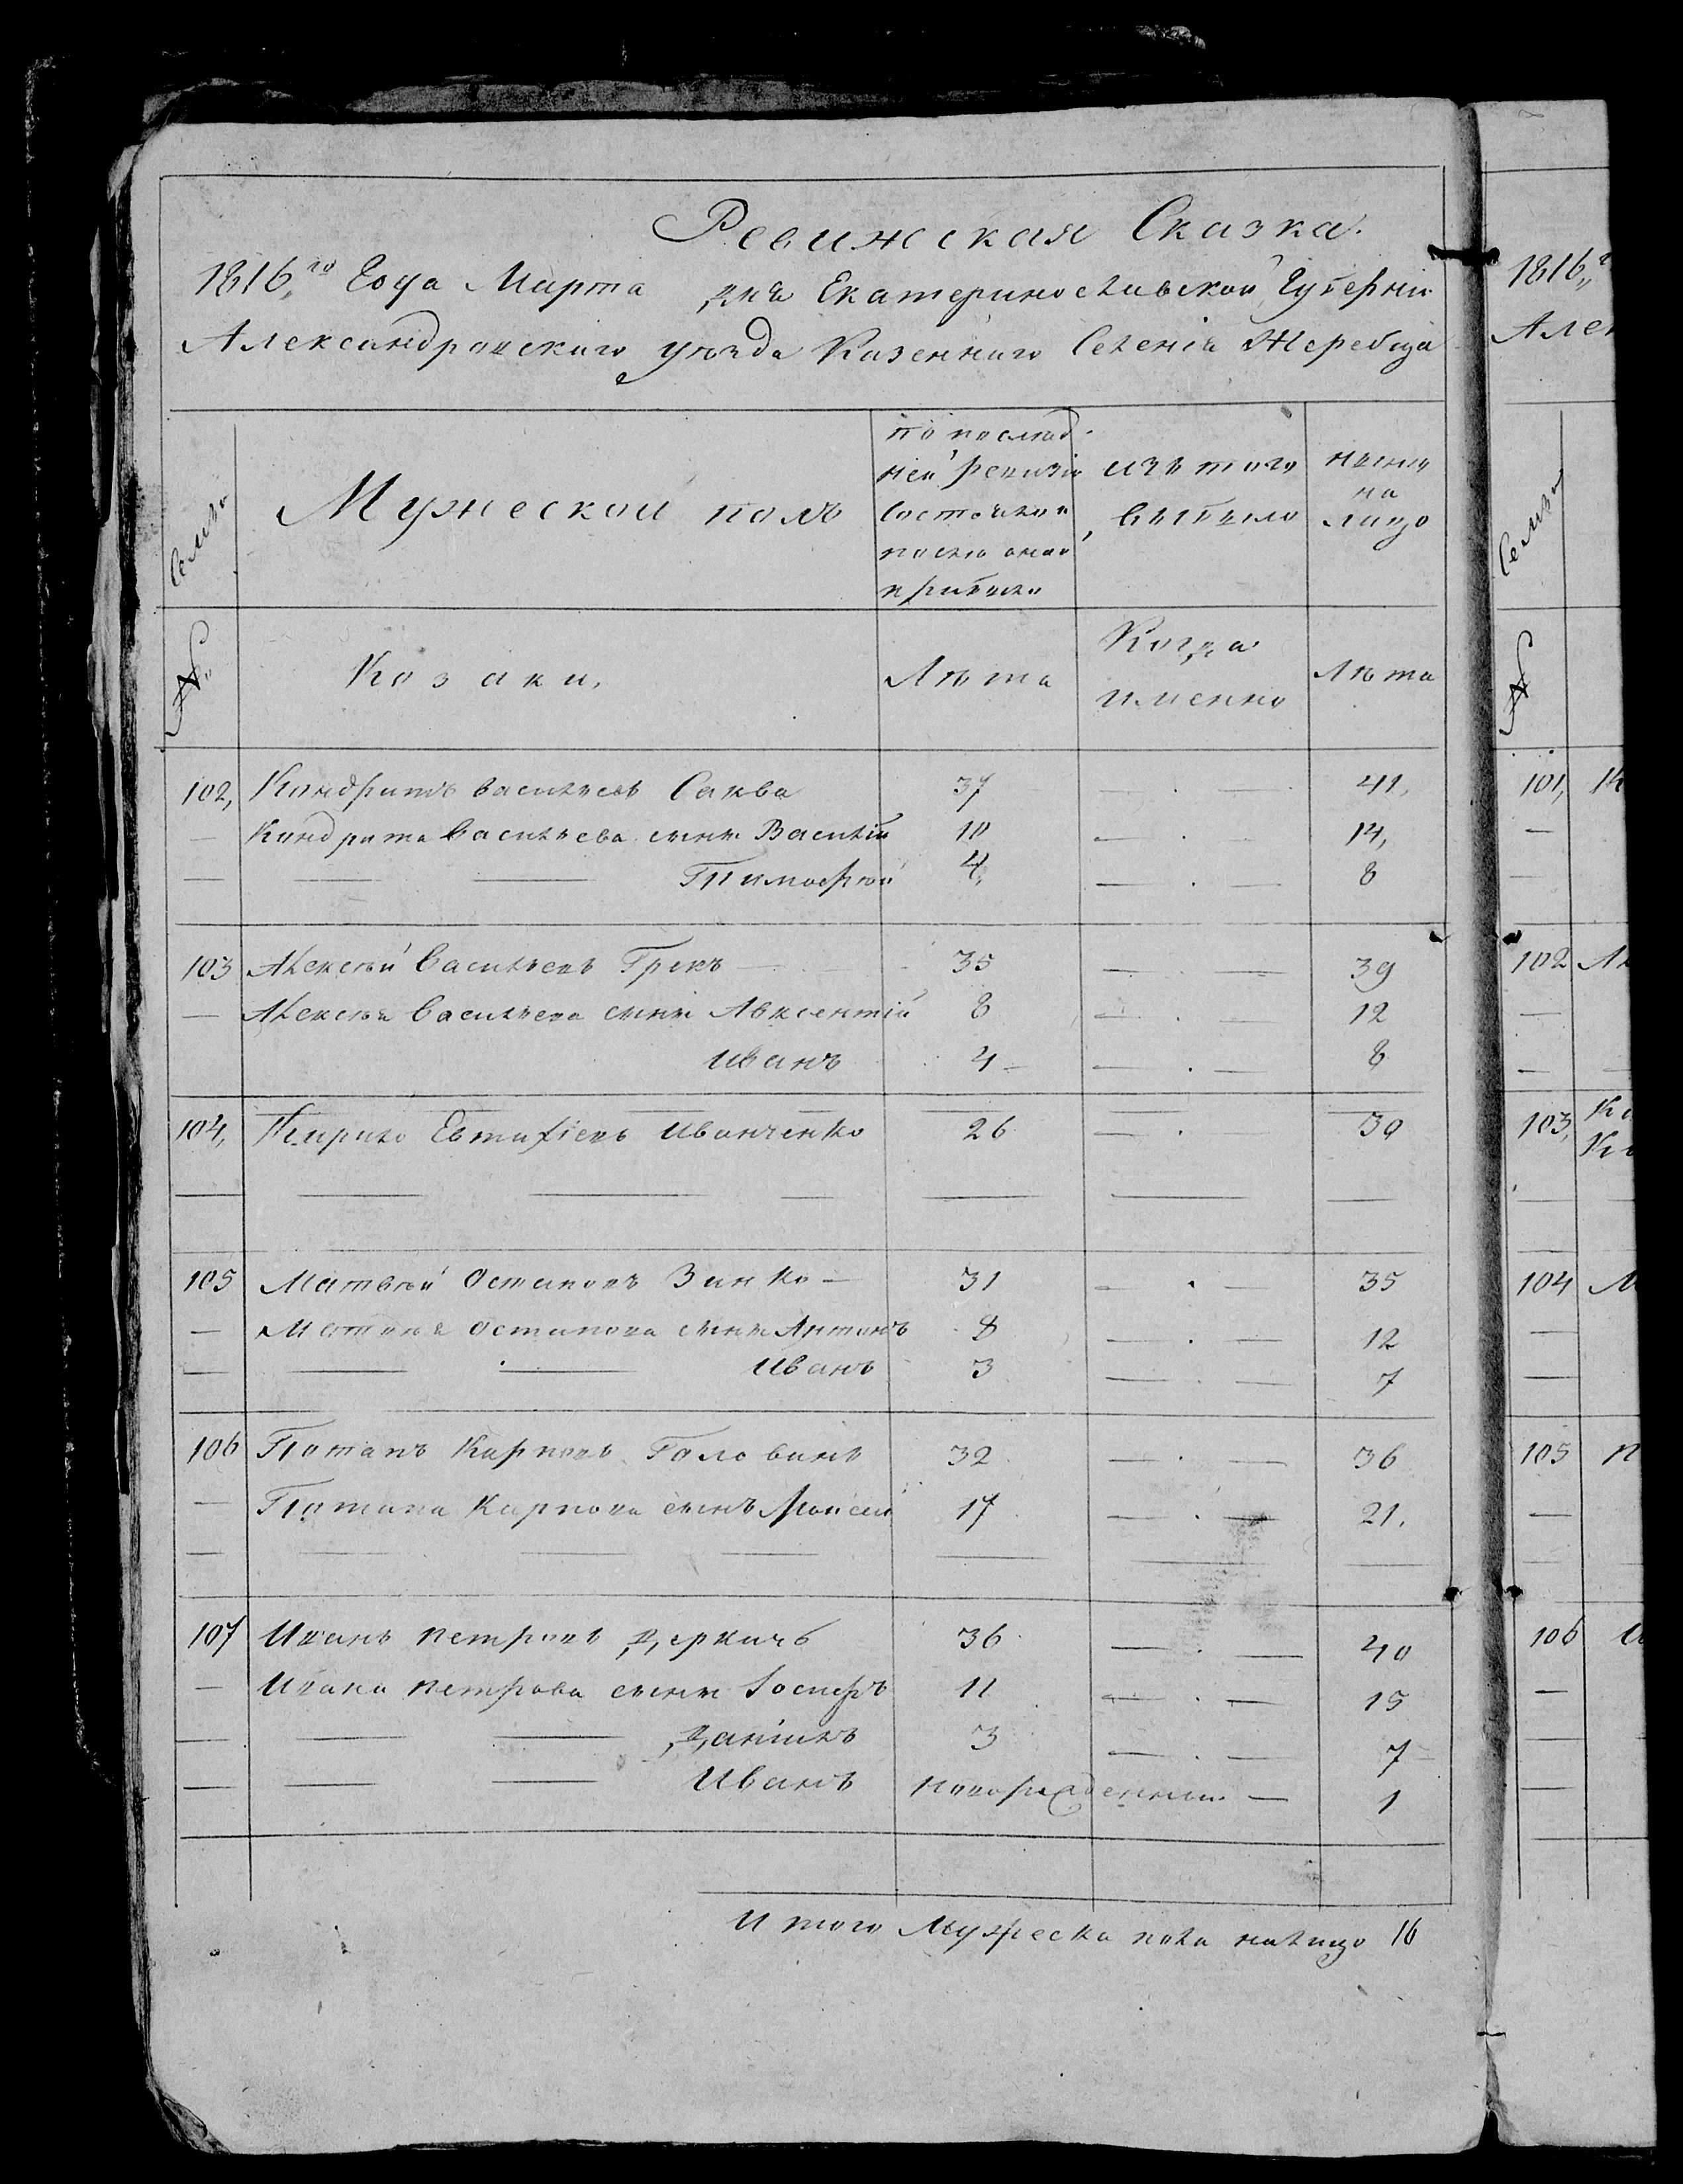 Ревижская Сказка.
1816,го Года Марта дня Екатеринославской Губерніи
Александровскаго уезда Казеннаго Селенія Жеребца
Семьи
Мужеской полъ
по послед
ней ревизіи
состояло и
после оной
прибыло
изъ того
выбыло
ныне
на
лицо
№
Козаки,
Лѣта
Когда
именно
Лѣта
102, Кондратъ Васильевъ Саква 37 — . — 41,
— Кондрата Васильева сыны Василій 10 — . — 14,
— — — Тимофѣй 4, — . — 8
103 Алексѣй Васильевъ Грекъ — 35 — . — 39
— Алексѣя Васильева сыны Авксентій 8 — . — 12
Иванъ 4 — . — 8
104, Кирило Евтифіевъ Иванченко 26 — . 30
— — — — — — —
105 Матвѣй Остаповъ Зинко — 31 — . 35
— Матвѣя Остапова сыны Антонъ 8 — . — 12
— — . — Иванъ 3 — . — 7
106 Потапъ Карповъ Головинъ 32 — . — 36
— Потапа Карпова сынъ Моисей 17 — . — 21.
— — — — — — —
107 Иванъ Петровъ Деркачъ 36 — . — 40
— Ивана Петрова сыны Іосифъ 11 — . — 15
— — — Даніилъ 3 — . — 7
— — — Иванъ новорожденный — 1
Итого Мужеска пола налицо 16
1816,,
Але
Семьи
№
101,
—
—
102
—
—
103,
104
—
—
105
—
—
106
—
—
—